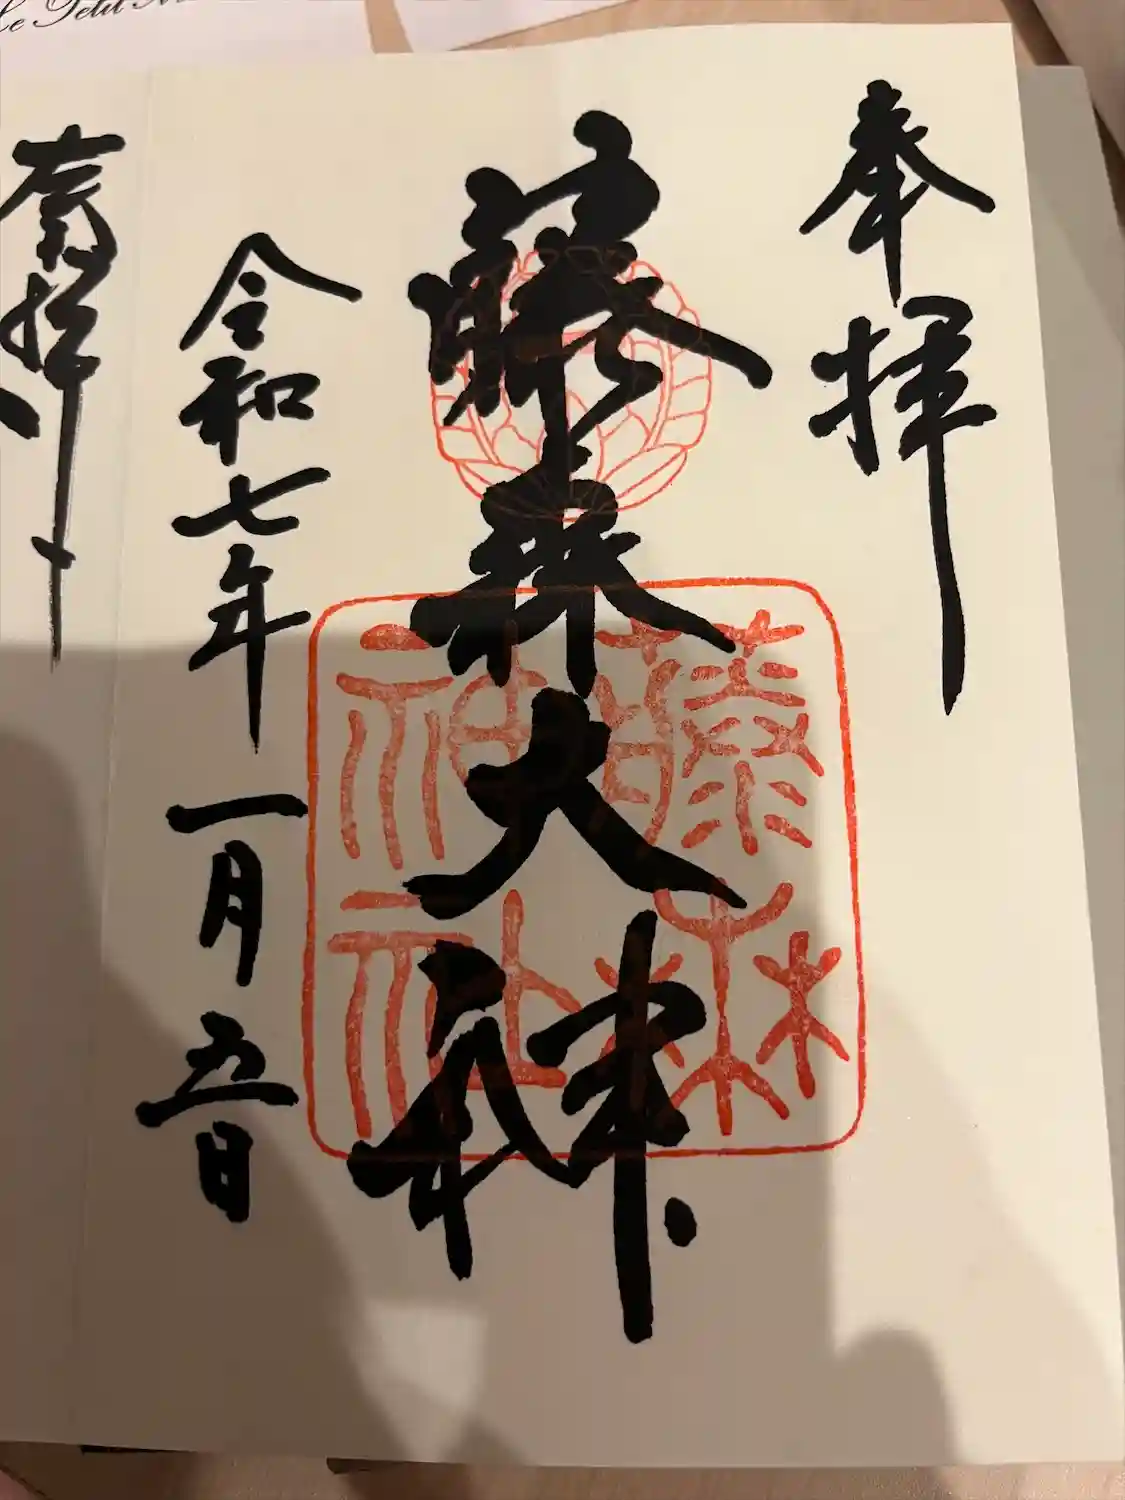 奉拝
藤森大神
藤森
神社
令和七年一月五日
奉拝
Le Petit